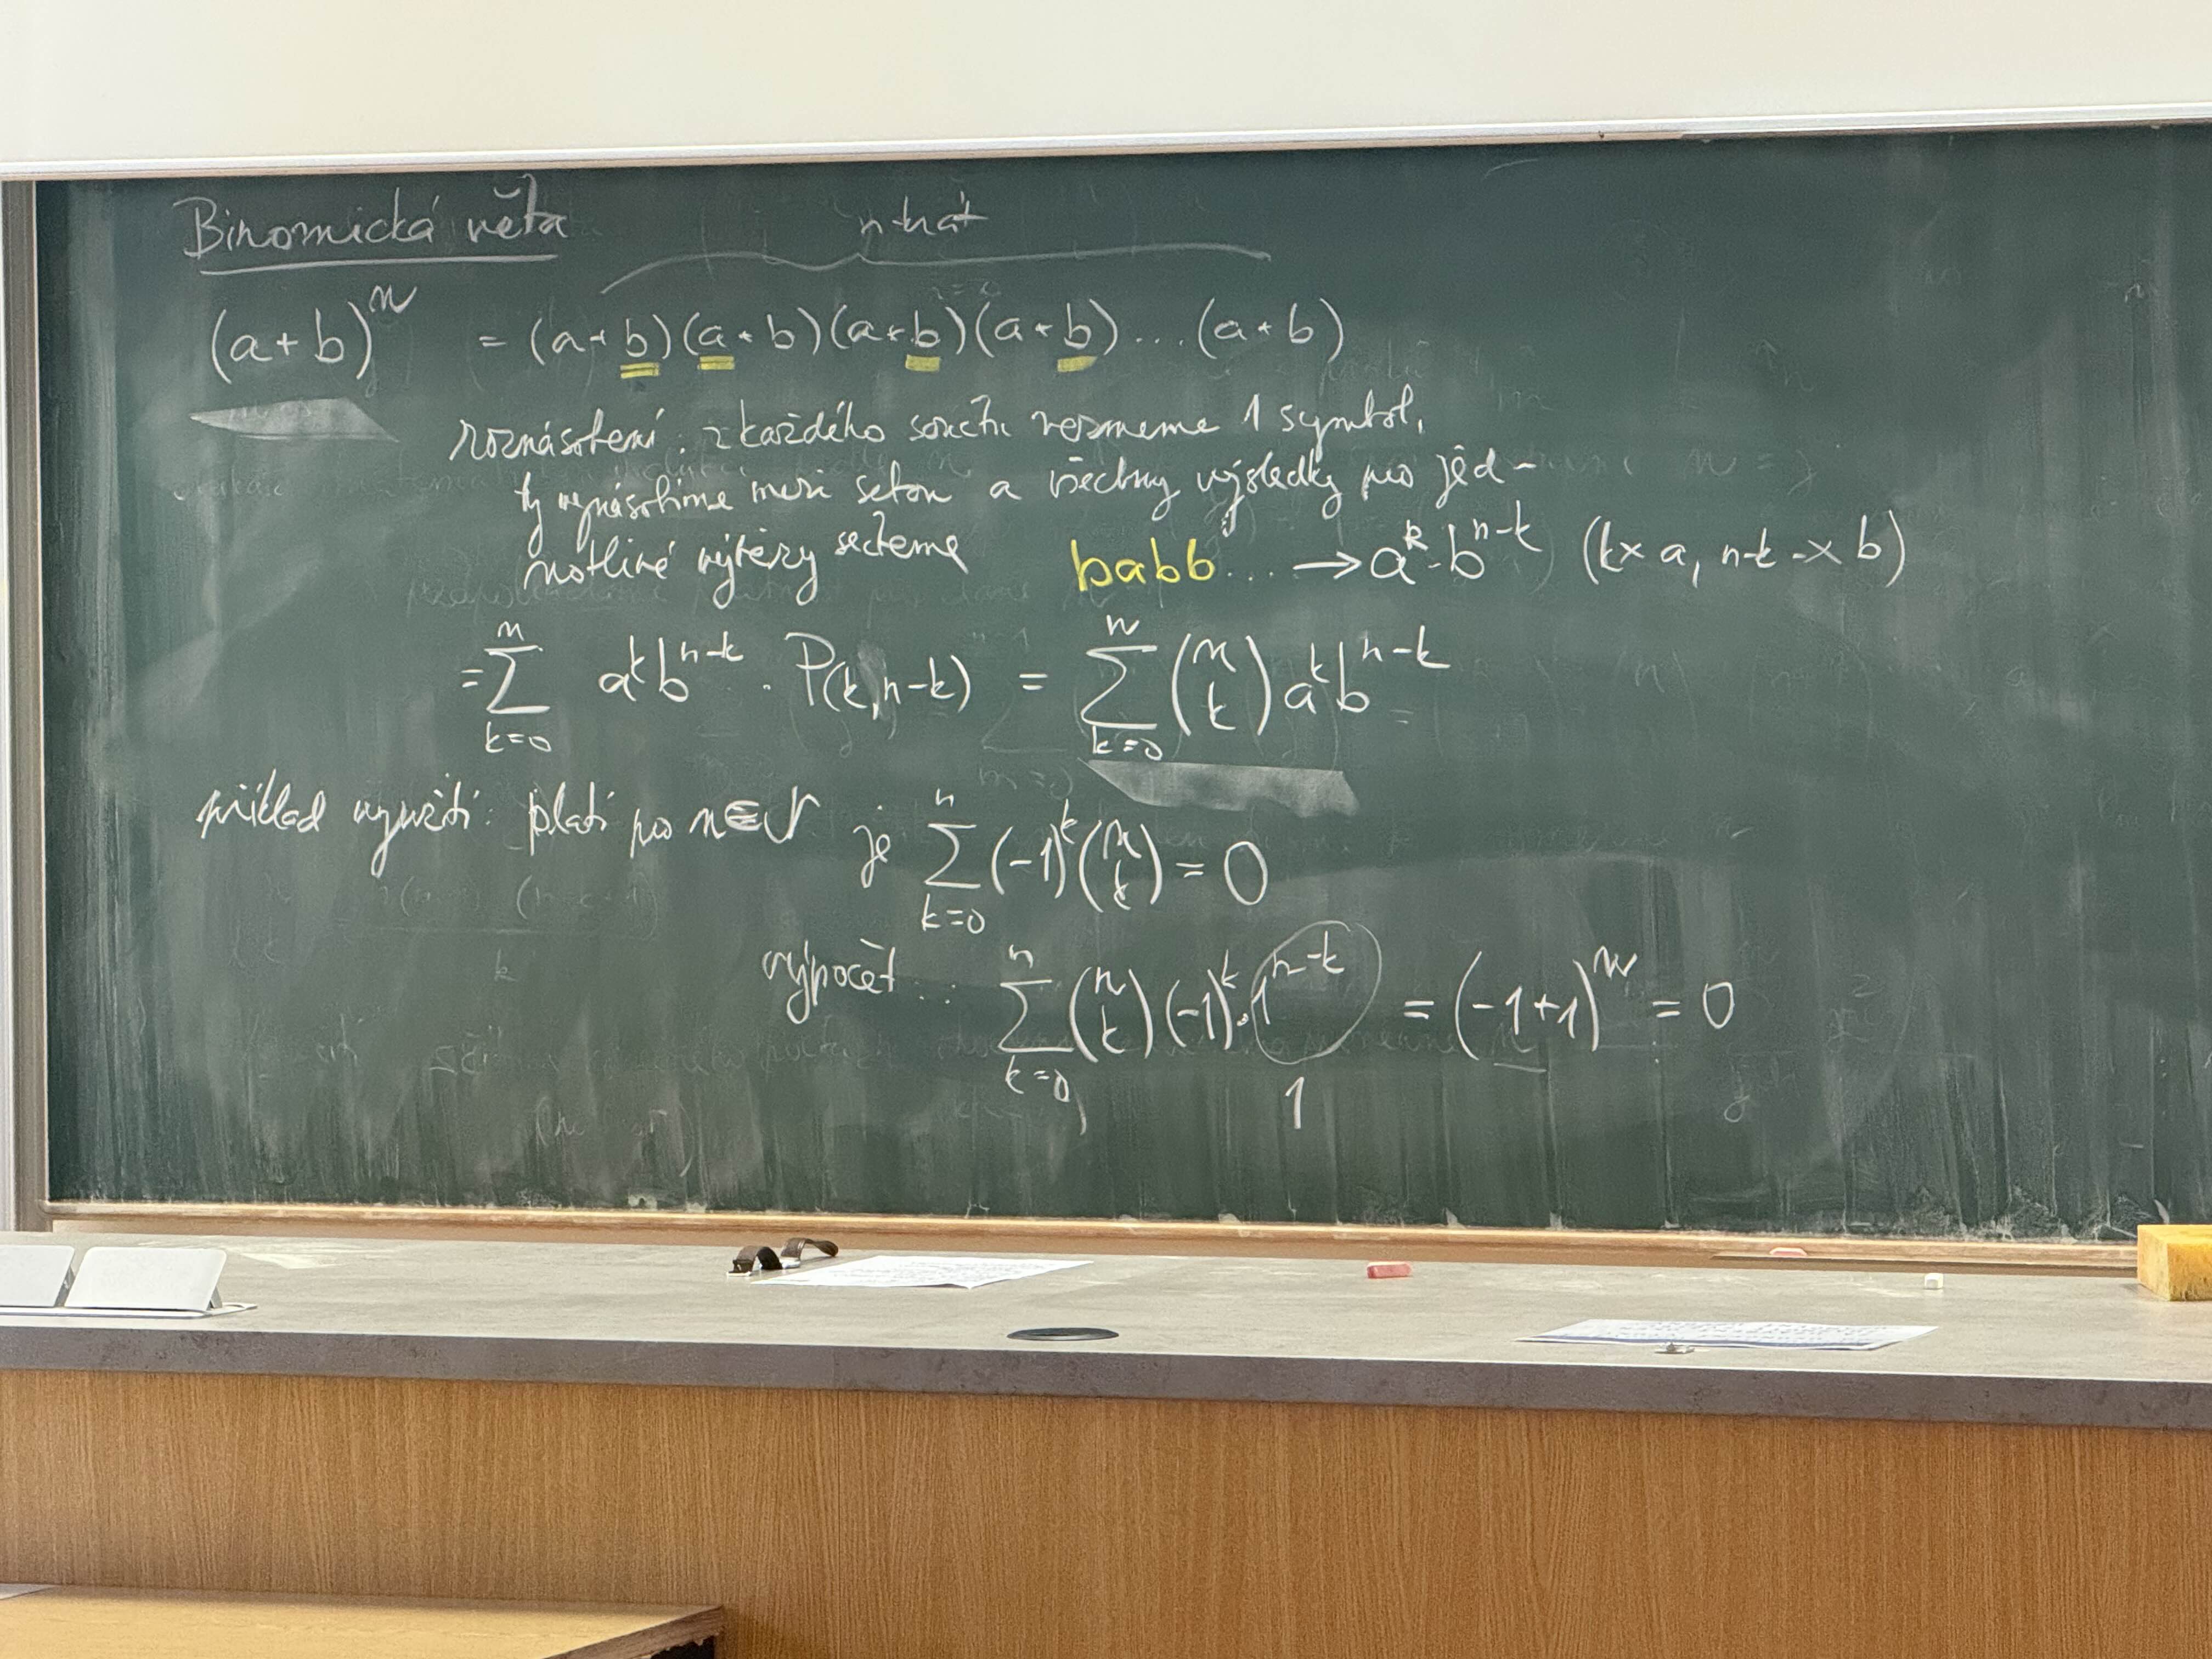 Binomická věta
n-krát
(a+b)^n = (a+b)(a+b)(a+b)(a+b)...(a+b)
roznásobení: z každého součtu vezmeme 1 symbol,
ty vynásobíme mezi sebou a všechny výsledky pro jed-
notlivé výběry sečteme babb... → a^k·b^{n-k} (k× a, n-k-× b)
= ∑_{k=0}^{n} a^k b^{n-k} · P(k,n-k) = ∑_{k=0}^{n} (n k) a^k b^{n-k}
příklad využití: platí pro n∈N je ∑_{k=0}^{n} (-1)^k (n k) = 0
výpočet... ∑_{k=0}^{n} (n k) (-1)^k · 1^{n-k} = (-1+1)^n = 0
1